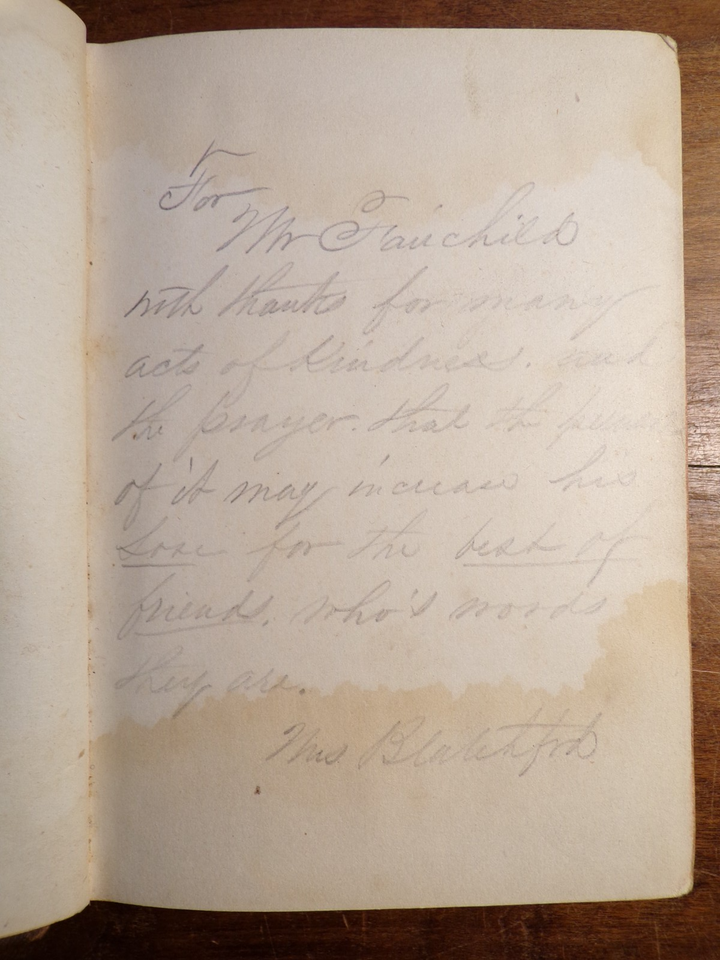 For
Mr Fairchild
with thanks for many
acts of kindness. and
the prayer. that the perusal
of it may increase his
love for the best of
friends. who's words
they are.
Mrs Blatchford